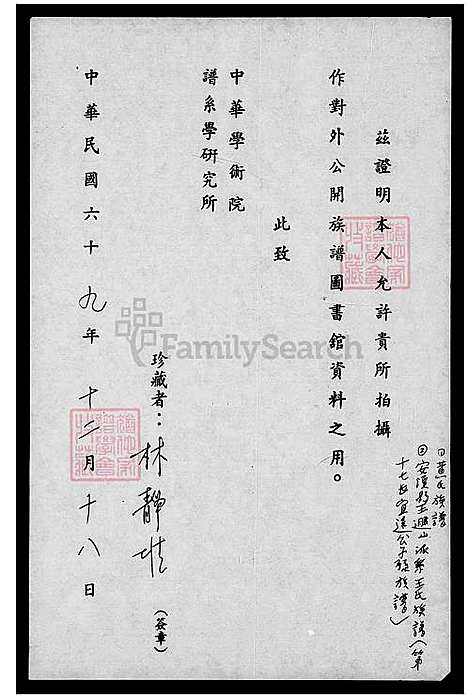 茲證明本人允許貴所拍攝
作對外公開族譜圖書館資料之用。
此致
中華學術院
譜系學研究所
珍藏者：林靜
（簽章）
中華民國六十九年十二月十八日
族譜
安溪 山派 王氏族譜（第
十七 宜 公子孫族譜）
FamilySearch